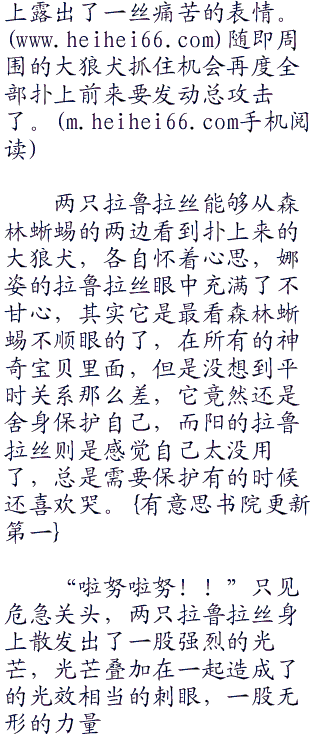 上露出了一丝痛苦的表情。
(www.heihei66.com)随即周
围的大狼犬抓住机会再度全
部扑上前来要发动总攻击
了。(m.heihei66.com手机阅
读)
两只拉鲁拉丝能够从森
林蜥蜴的两边看到扑上来的
大狼犬，各自怀着心思，娜
姿的拉鲁拉丝眼中充满了不
甘心，其实它是最看森林蜥
蜴不顺眼的了，在所有的神
奇宝贝里面，但是没想到平
时关系那么差，它竟然还是
舍身保护自己，而阳的拉鲁
拉丝则是感觉自己太没用
了，总是需要保护有的时候
还喜欢哭。{有意思书院更新
第一}
“啦努啦努！！”只见
危急关头，两只拉鲁拉丝身
上散发出了一股强烈的光
芒，光芒叠加在一起造成了
的光效相当的刺眼，一股无
形的力量